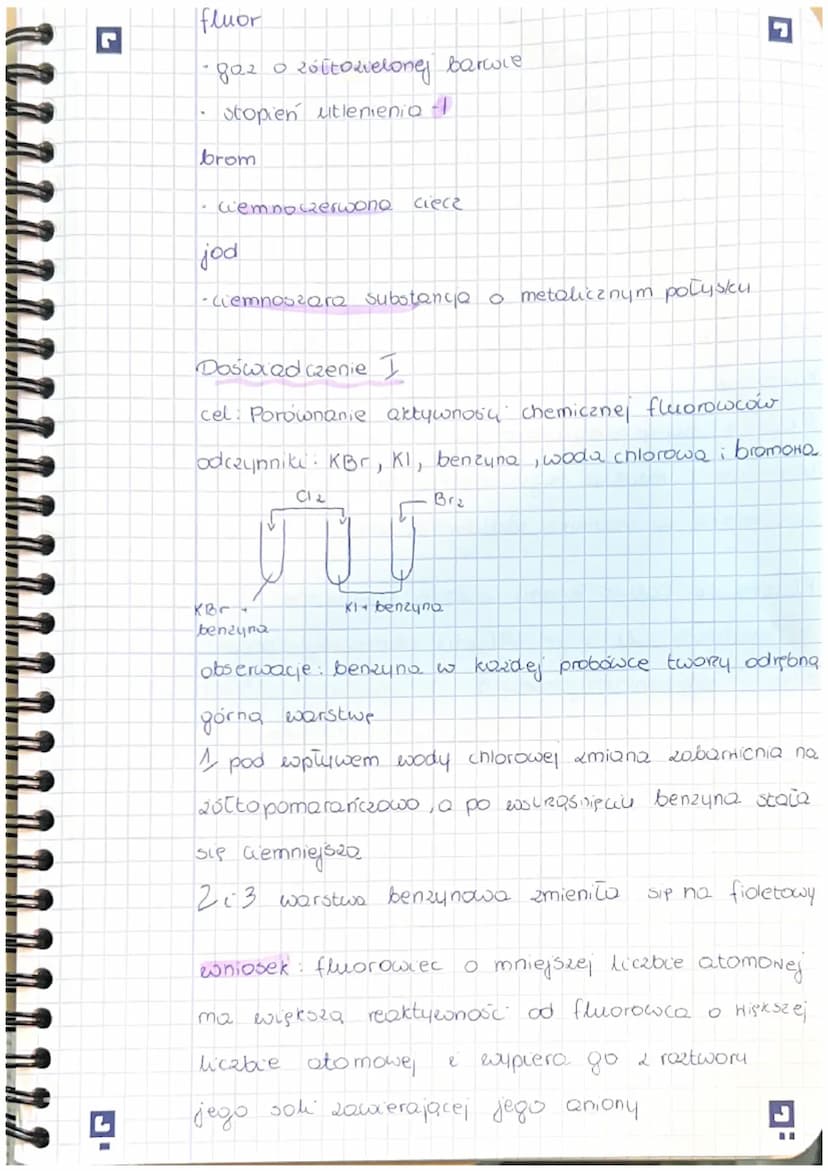 fluor
· gaz o żółtozielonej barwie
· stopień utlenienia -1
brom
· ciemnoczerwona ciecz
jod
· ciemnoszara substancja o metalicznym połysku
Doświadczenie I
cel: Porównanie aktywności chemicznej fluorowców
odczynniki: KBr, KI, benzyna, woda chlorowa i bromowa
Cl2 Br2
KBr + KI + benzyna
benzyna
obserwacje: benzyna w każdej probówce tworzy odrębną
górną warstwę
1 pod wpływem wody chlorowej zmiana zabarwienia na
żółtopomarańczowo, a po wstrząśnięciu benzyna stała
się ciemniejsza
2 i 3 warstwa benzynowa zmieniła się na fioletowy
wniosek: fluorowiec o mniejszej liczbie atomowej
ma większą reaktywność od fluorowca o większej
liczbie atomowej i wypiera go z roztworu
jego soli zawierającej jego aniony